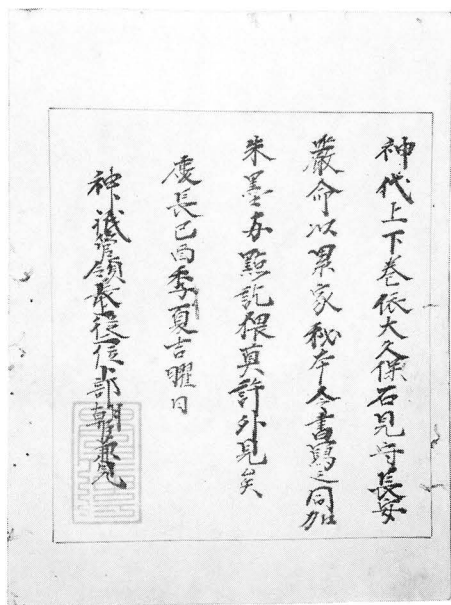 神代上下巻依大久保石見守長安
厳命以累家秘本令書写之同加
朱墨両點訖猥莫許外見矣
慶長己酉季夏吉曜日
神祇管領長従二位卜部朝臣兼見